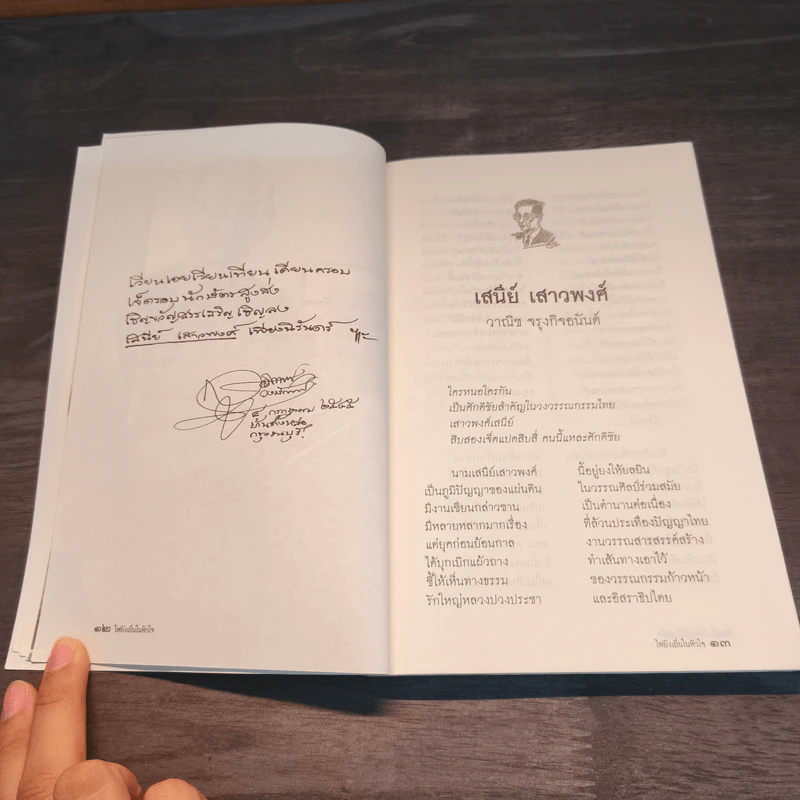 เวียนเอยเวียนเทียน เดียนครอบ
เจ็ดรอบ นักษัตร สูงส่ง
เชิญขวัญสารเจริญ เชิญลง
เสนีย์ เสาวพงศ์ เนิรันดร์
๔ กรกฎาคม ๒๕๔๕
กรุงธนบุรี
๑๒ ไฟยังเย็นในหัวใจ
เสนีย์ เสาวพงศ์
วาณิช จรุงกิจอนันต์
ใครหนอใครกัน
เป็นศักดิชัยสำคัญในวงวรรณกรรมไทย
เสาวพงศ์เสนีย์
สิบสองเจ็ดแปดสิบสี่ คนนี้แหละศักดิชัย
นามเสนีย์เสาวพงศ์ นี้อยู่ยงให้ยลยิน
เป็นภูมิปัญญาของแผ่นดิน ในวรรณศิลป์ร่วมสมัย
มีงานเขียนกล่าวขาน เป็นตำนานต่อเนื่อง
มีหลายหลากมากเรื่อง ที่ล้วนประเทืองปัญญาไทย
แต่ยุคก่อนย้อนกาล งานวรรณสารสรรค์สร้าง
ได้บุกเบิกแผ้วถาง ทำเส้นทางเอาไว้
ชี้ให้เห็นทางธรรม ของวรรณกรรมก้าวหน้า
รักใหญ่หลวงปวงประชา และอิสราธิปไตย
ไฟยังเย็นในหัวใจ ๑๓